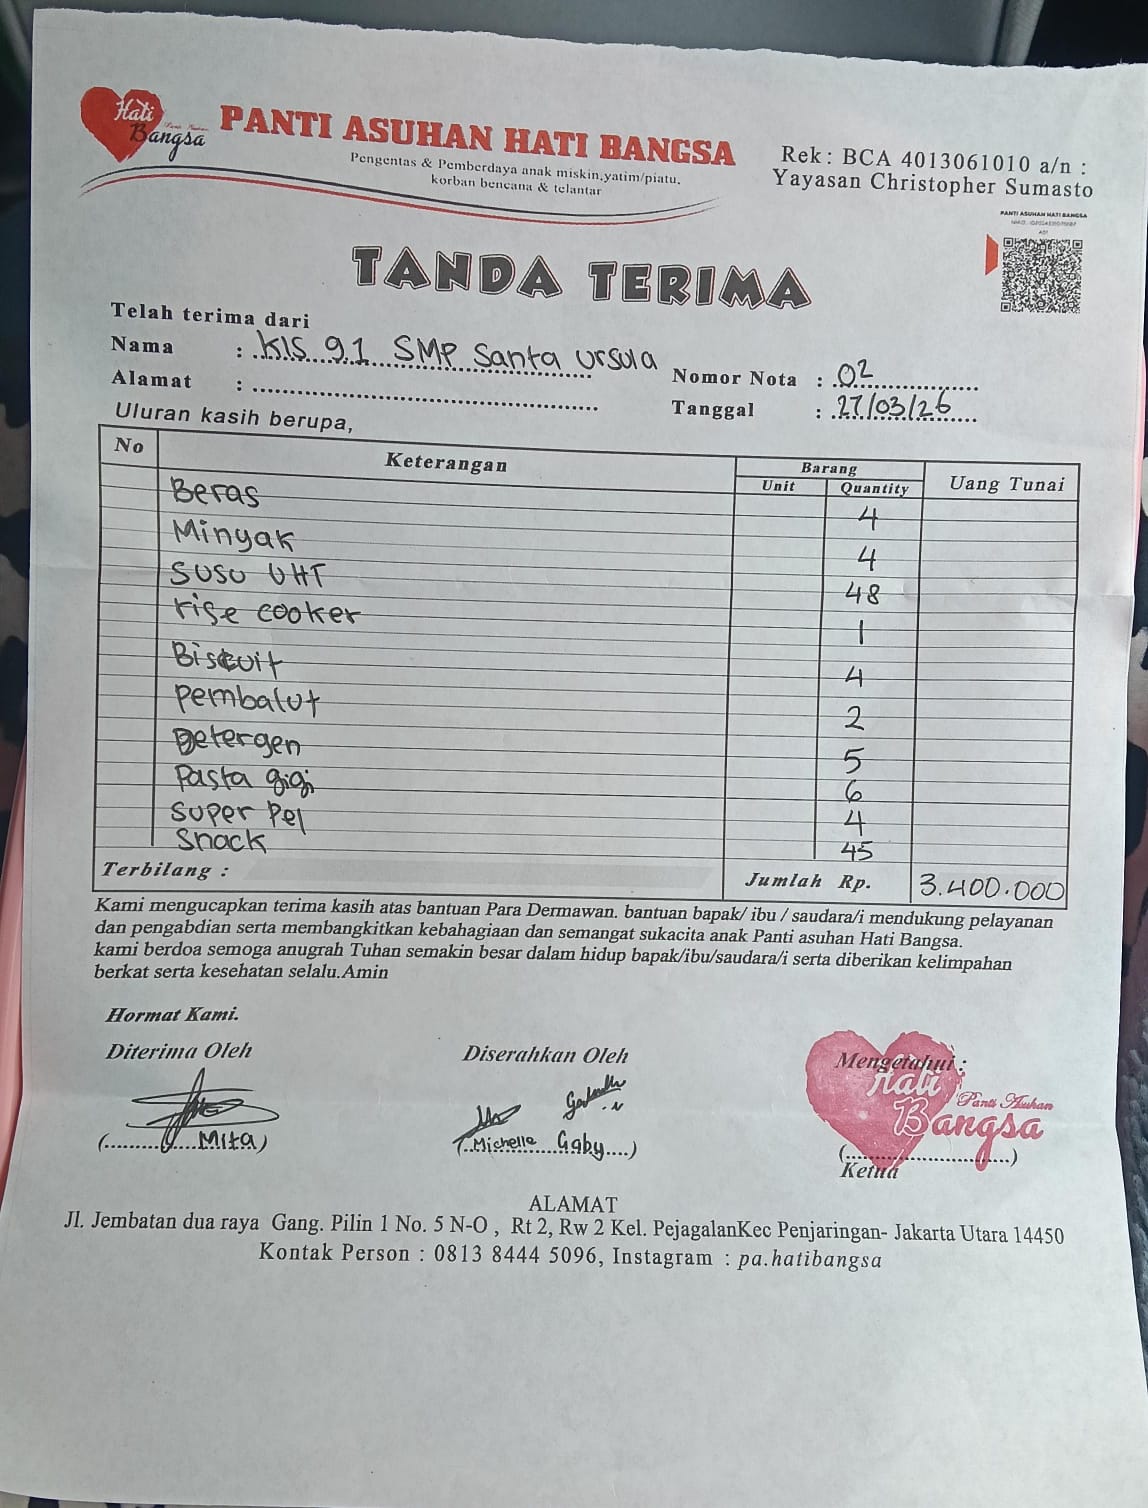 Hati
Bangsa
PANTI ASUHAN HATI BANGSA
Pengentas & Pemberdaya anak miskin,yatim/piatu,
korban bencana & telantar
Rek : BCA 4013061010 a/n :
Yayasan Christopher Sumasto
PANTI ASUHAN HATI BANGSA
A01
TANDA TERIMA
Telah terima dari
Nama : Kls 9.1 SMP Santa Ursula
Alamat :
Nomor Nota : 02
Tanggal : 27/03/26
Uluran kasih berupa,
No Keterangan Barang Uang Tunai
Unit Quantity
Beras 4
Minyak 4
Susu UHT 48
rise cooker 1
Biscuit 4
Pembalut 2
Detergen 5
Pasta gigi 6
Super Pel 4
Snack 45
Terbilang : Jumlah Rp. 3.400.000
Kami mengucapkan terima kasih atas bantuan Para Dermawan. bantuan bapak/ ibu / saudara/i mendukung pelayanan
dan pengabdian serta membangkitkan kebahagiaan dan semangat sukacita anak Panti asuhan Hati Bangsa.
kami berdoa semoga anugrah Tuhan semakin besar dalam hidup bapak/ibu/saudara/i serta diberikan kelimpahan
berkat serta kesehatan selalu.Amin
Hormat Kami.
Diterima Oleh Diserahkan Oleh Mengetahui :
Hati
Panti Asuhan
Bangsa
(Mita) (Michelle Gaby) ( )
Ketua
ALAMAT
Jl. Jembatan dua raya Gang. Pilin 1 No. 5 N-O , Rt 2, Rw 2 Kel. PejagalanKec Penjaringan- Jakarta Utara 14450
Kontak Person : 0813 8444 5096, Instagram : pa.hatibangsa